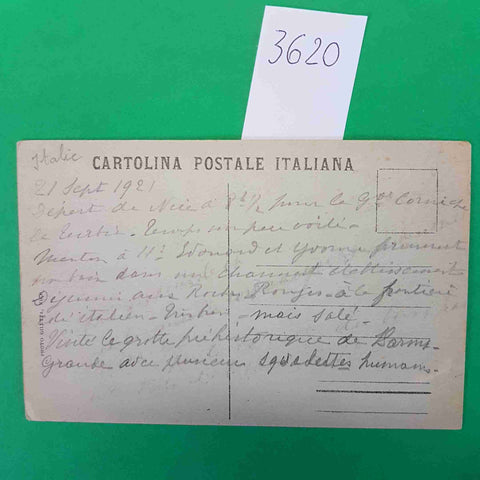 3620
Italie
CARTOLINA POSTALE ITALIANA
21 Sept 1921
Départ de Nice à 8h 1/2 pour la Gde Corniche
la Turbie - Temps un peu voilé -
Menton à 11h Edouard et Yvonne prennent
bain dans un charmant établissement
Déjeuner aux Roches Rouges - à la frontière
italien - - mais salé -
Visite la grotte préhistorique de Barma
Grande avec plusieurs squelettes humains -